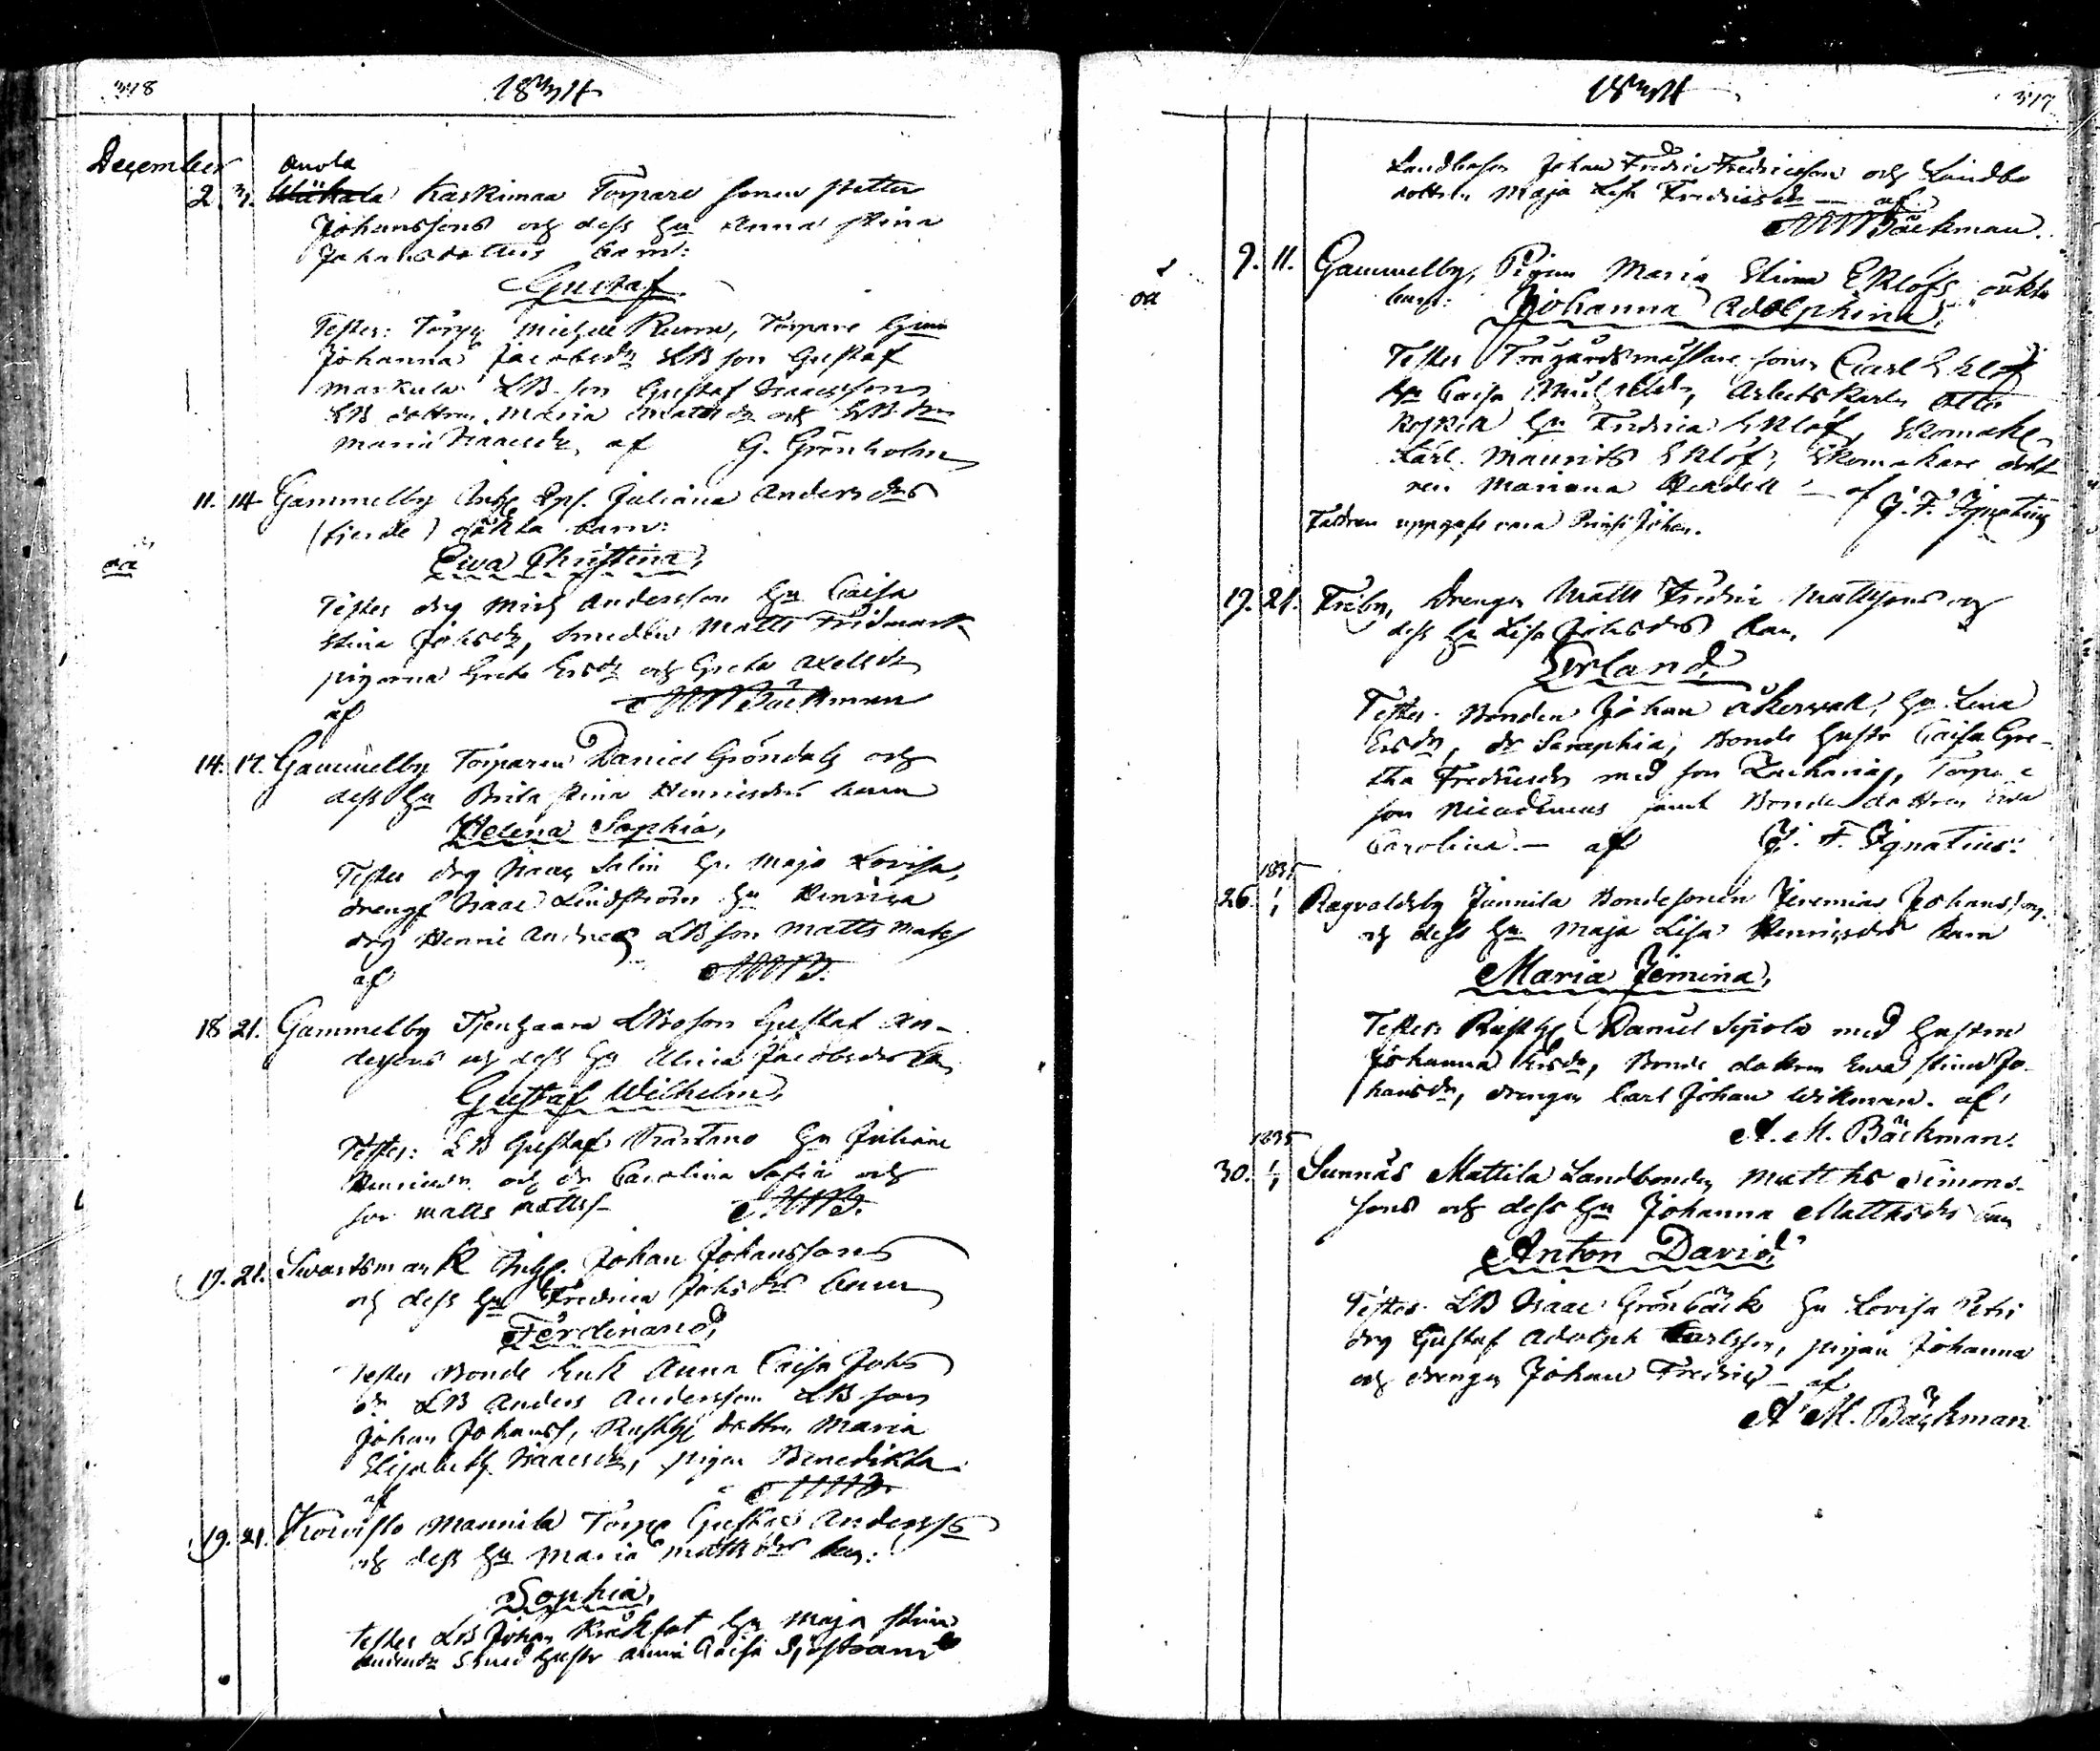 378
1834
December
Anola
2. 3. Wiikala Kaskimaa Torpare sonen Petter
Johanssons och dess hu Anna Stina
Johansdotters barn:
Gustaf
Testes: Torp Michel, Torpare
Johanna Jacobsdr LB son Gustaf
Markula LB son Gustaf Isaacsson
LB dottren Maria Mattsdr och LB
Maria Isaacsdr af G. Grönholm
11. 14 Gammelby Inh Juliana Andersdrs
(fierde) oäkta barn:
oä
Eva Christina,
Testes drg Mich Andersson hu Caisa
Stina Johsdr, Smeden Matts Fridmark
pigorna Greta Ersdr och Greta Axelsdr
af AMBäckman
14. 17. Gammelby Torparen Daniel Gröndahls och
dess hu Brita Stina Henricsdrs barn
Helena Sophia,
Testes drg Isaac Salin hu Maja Lovisa,
drengs Isaac Lindström hu Henrica
drg Henric Andreas LB son Matts Mats
af AMB.
18 21. Gammelby LBoson Gustaf An-
dersons och dess hu Jacobsdrs
Gustaf Wilhelm,
Testes: LB Gustaf hu Juliana
Henricsdr och dr Carolina Sofia och
son Matts Mattss AMB.
19. 21. Swartsmark Inh. Johan Johanssons
och dess hu Fredrica Johsdrs barn
Ferdinand,
Testes Bonde Enk Anna Caisa Johs
dr LB Anders Andersson LB son
Johan Johanss, Rusth dottren Maria
Elisabeth Isaacsdr, pigan Benedikta
af AMB.
19. 21. Koivisto Mannila Torp Gustaf Anderss
och dess hu Maria Mattsdrs barn:
Sophia,
Testes LB Johan Kråkfot hu Maja Stina
Andersdr Smed hustr Anna Caisa Sjöstrand
1834
379
Landboson Johan Fredric Fredricsson och Landbo
dottren Maja Lisa Fredricsdr — af
AMBäckman.
9. 11. Gammelby, Pigan Maria Stina Eklöfs oäkta
oä
barn: Johanna Adolphina,
Testes Trägårdsmästare sonen Carl Eklöf
hu Caisa, Arbetskarln Otto
Koskia hu Fredrica Eklöf, Skomake
Carl Maurits Eklöf, Skomakare dott
ren Mariana — af J. F. Ignatius
Fadren uppgafs vara Johan.
19. 21. Friby, Drengen Matts Fredric Mattssons och
dess hu Lisa Johsdrs barn,
Erland,
Testes. Bonden Johan Åkerwall, hu Lena
Ersdr, dr Seraphia, Bonde hustr Caisa Gre-
tha Fredricsdr med son Zacharias, Torpare
son Nicodemus samt Bonde dottren Eva
Carolina. — af J. F. Ignatius.
1835
26. 1 Ragvaldsby Junnila Bondesonen Jeremias Johanssons
och dess hu Maja Lisa Henricsdrs barn
Maria Jemina,
Testes Rusth Daniel Sipola med hustrun
Johanna Ersdr, Bonde dottren Eva Stina Jo-
hansdr, drengen Carl Johan Wikman. af
A. M. Bäckman.
1835
30. 1 Sunnäs Mattila Landbonden Matths Simons-
sons och dess hu Johanna Matthsdrs barn
Anton David,
Testes. LB Isaac Grönbäck hu Lovisa Petri
drg Gustaf Adolph Carlsson, pigan Johanna
och drengen Johan Fredric — af
A. M. Bäckman